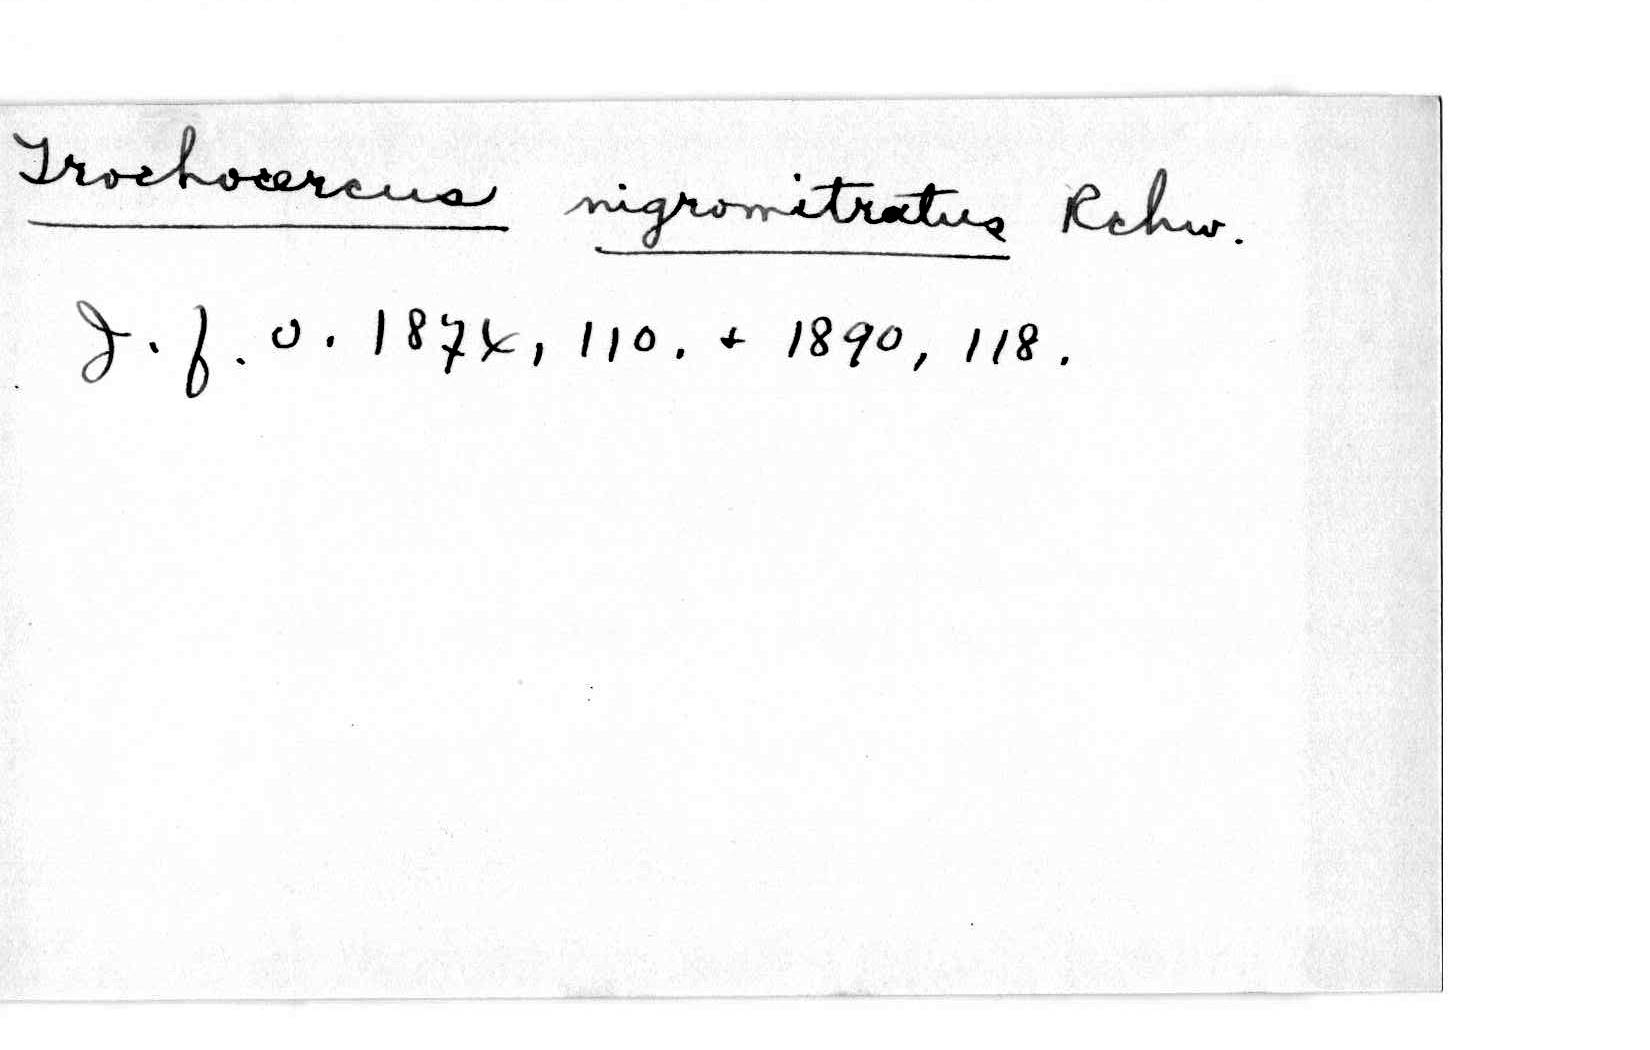 Trochocercus nigromitratus Rchw.
J. f. O. 1874, 110. + 1890, 118.